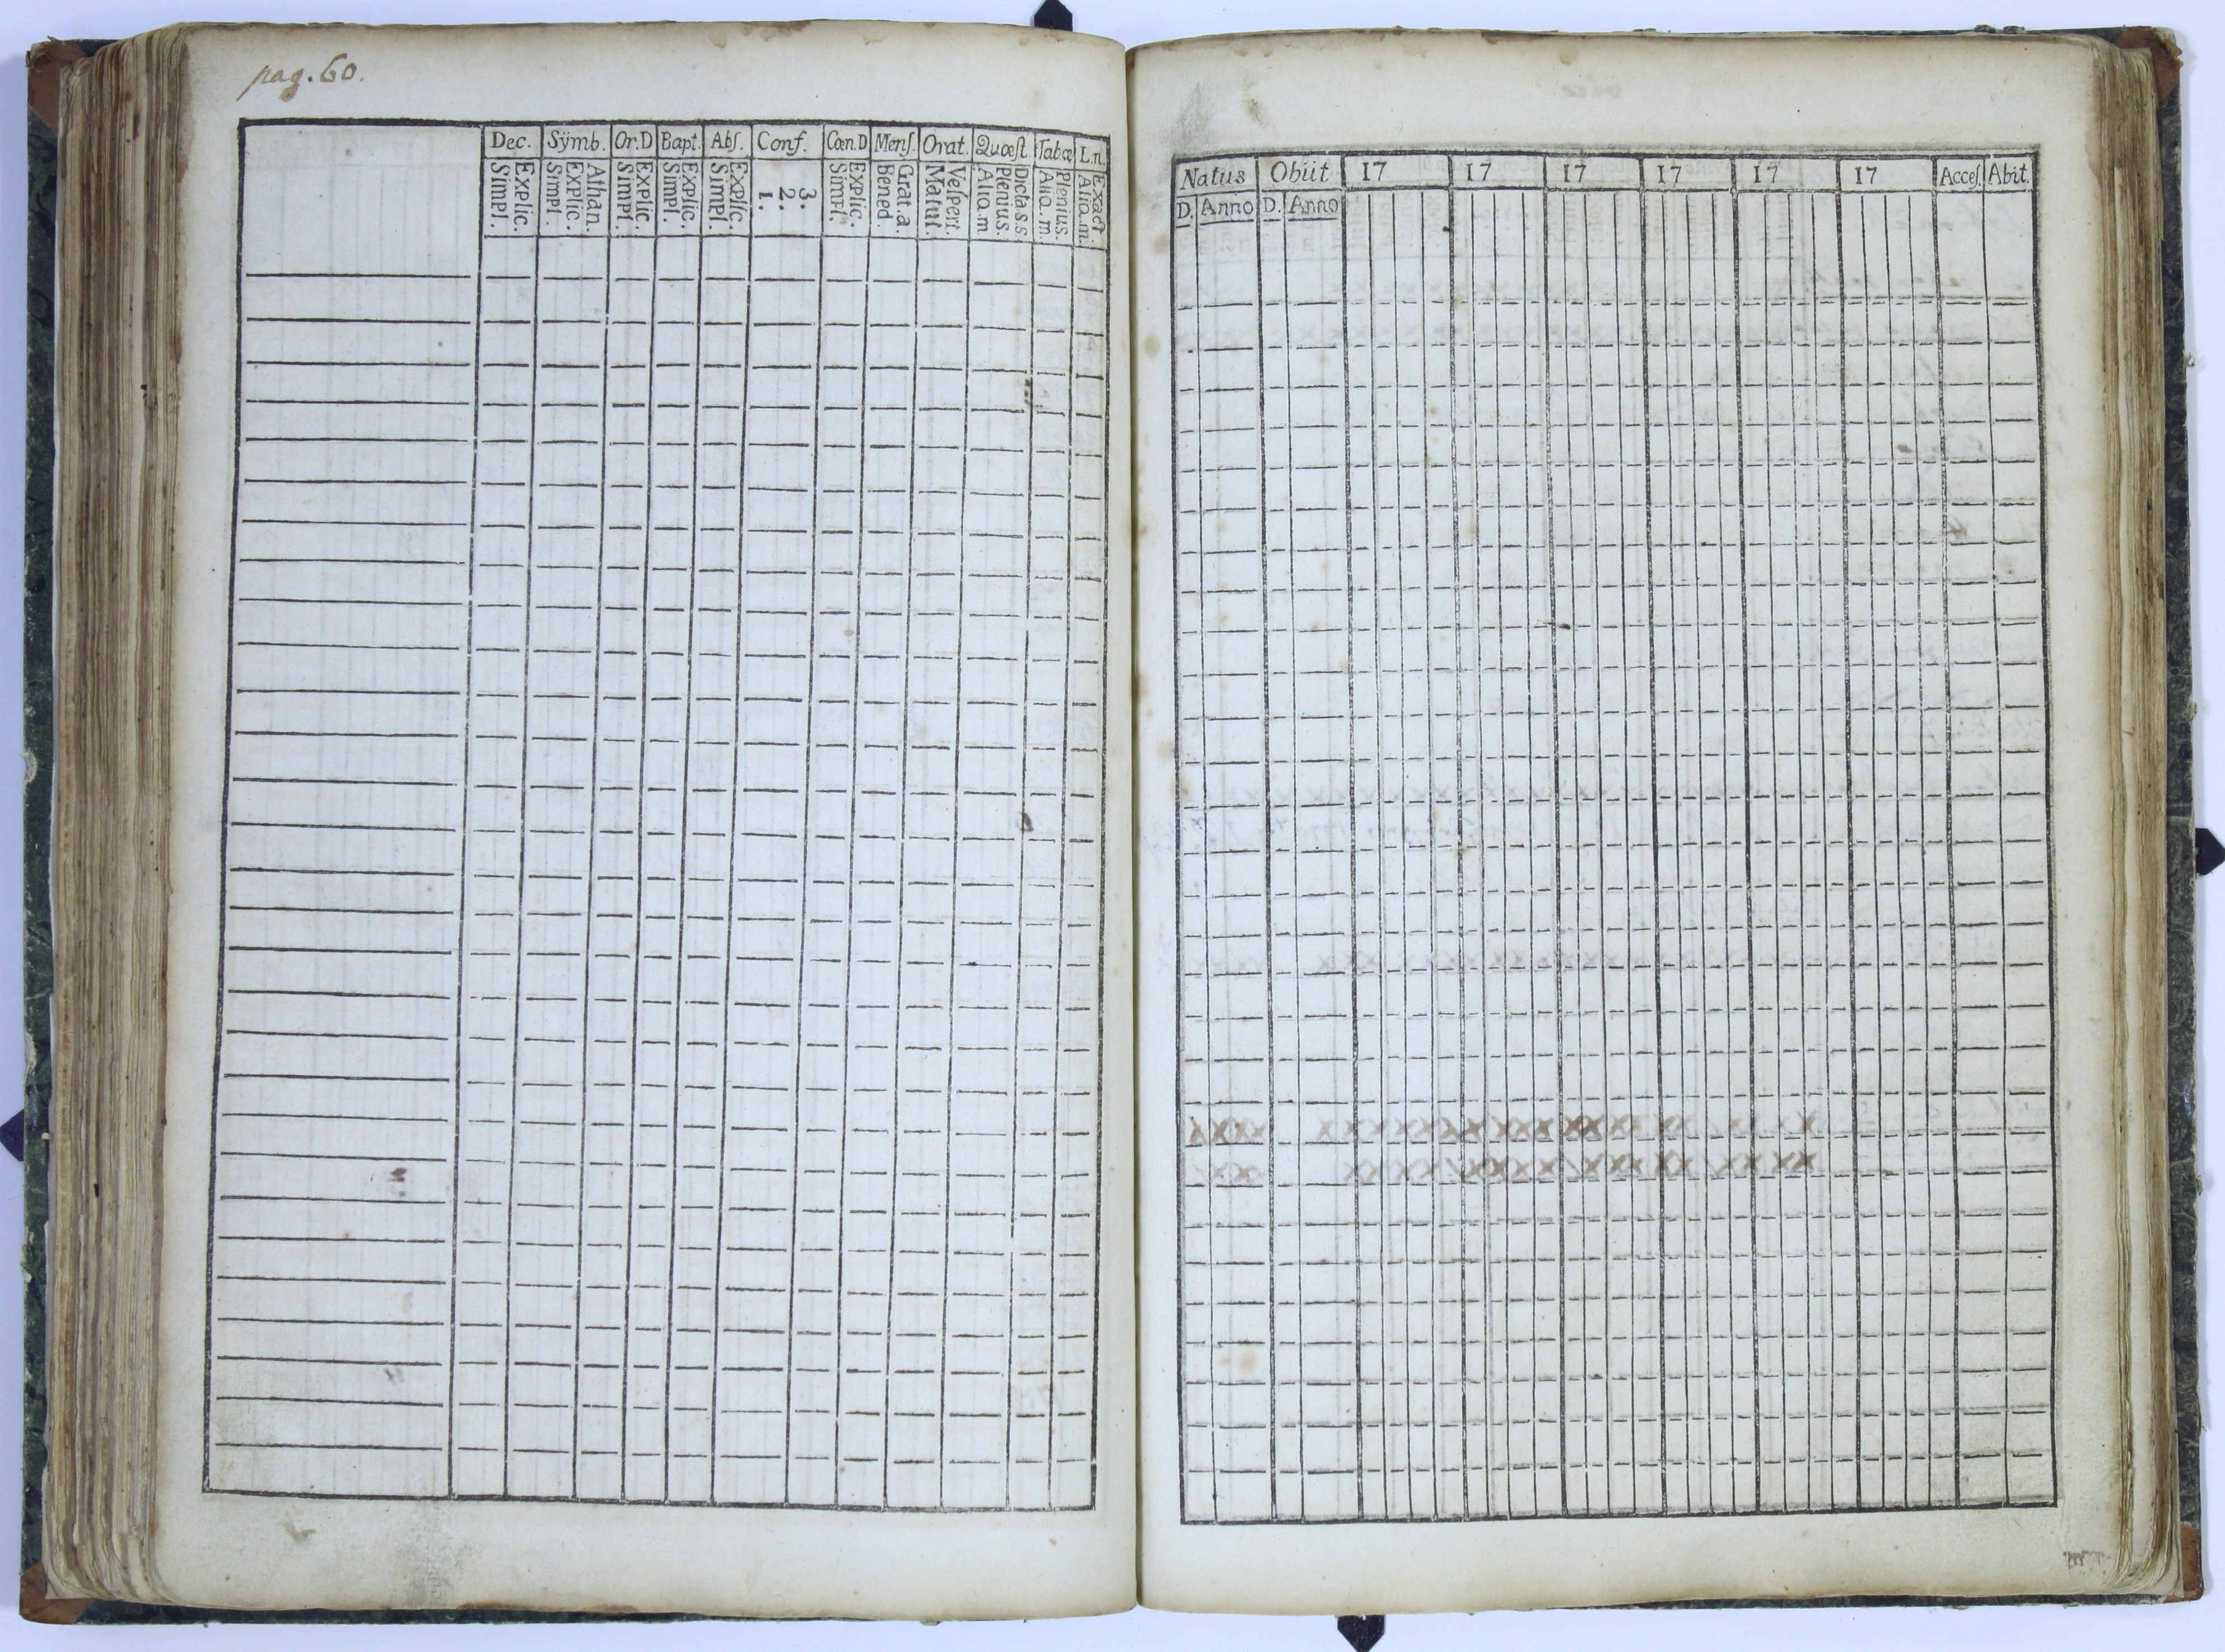 pag. 60.
Dec. Sÿmb. Or.D Bapt. Abſ. Conf. Cœn.D Menſ. Orat. Quæſt. Tab.œ L.n.
Simpl. Explic. Simpl. Explic. Athan. Simpl. Explic. Simpl. Explic. Simpl. Explic. 1. 2. 3. Simpl. Explic. Bened. Grat.a. Matut. Veſpert. Alio.m Plenius. Dicta.s.s Alio.m. Plenius. Alio.m. Exact.
Natus Obiit 17 17 17 17 17 17 Acceſ. Abit.
D. Anno D. Anno